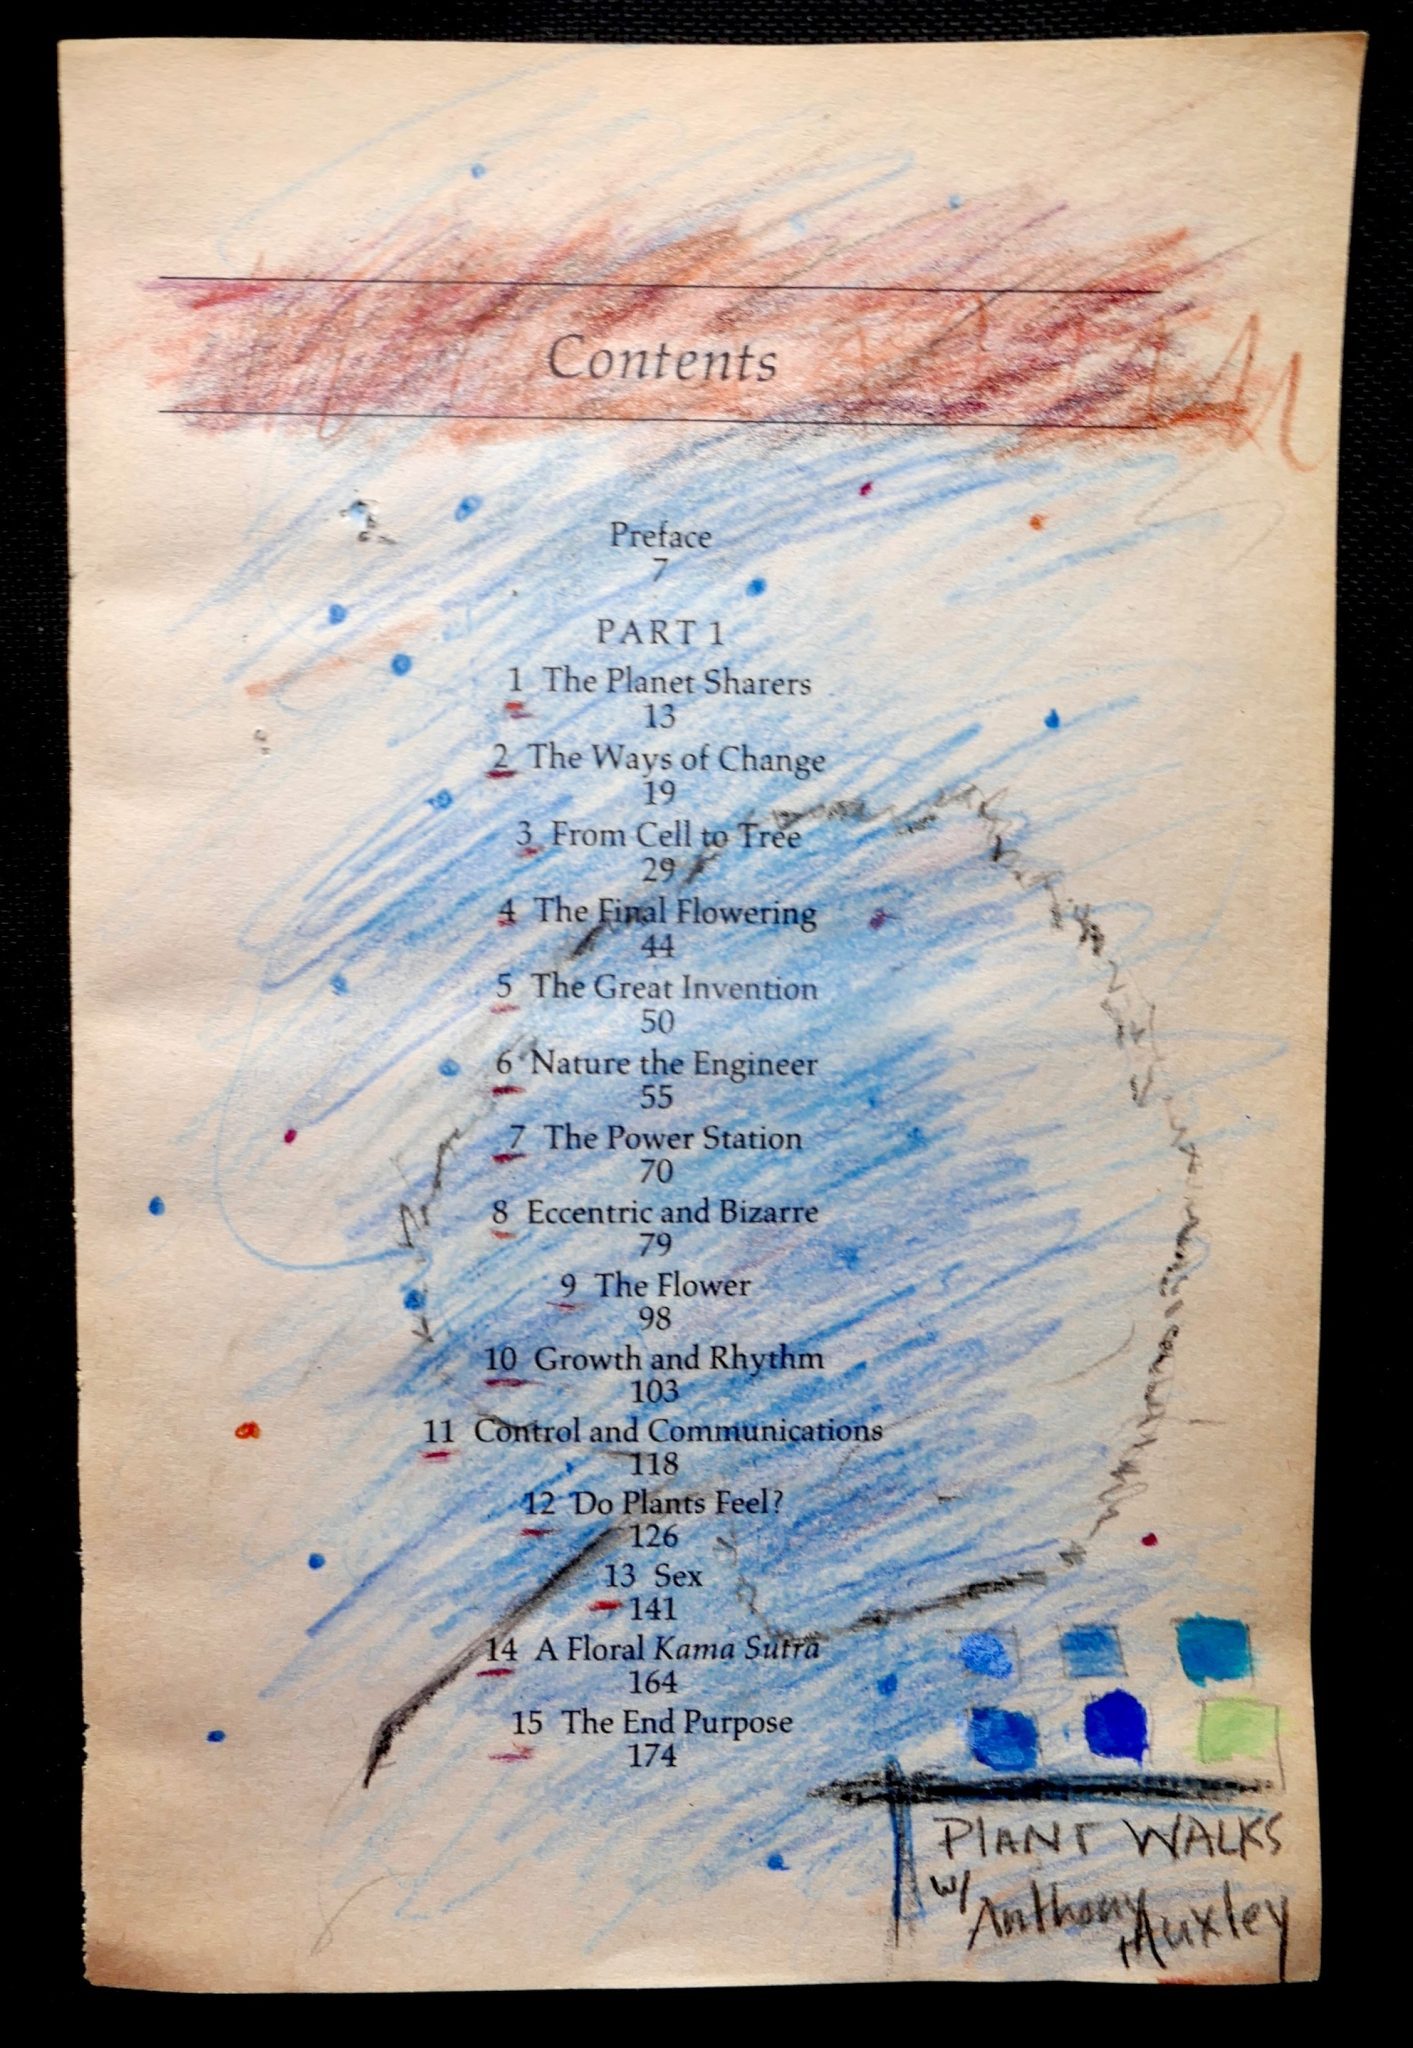 Contents
Preface
7
PART 1
1 The Planet Sharers
13
2 The Ways of Change
19
3 From Cell to Tree
29
4 The Final Flowering
44
5 The Great Invention
50
6 Nature the Engineer
55
7 The Power Station
70
8 Eccentric and Bizarre
79
9 The Flower
98
10 Growth and Rhythm
103
11 Control and Communications
118
12 Do Plants Feel?
126
13 Sex
141
14 A Floral Kama Sutra
164
15 The End Purpose
174
PLANT WALKS
w/ Anthony
Huxley